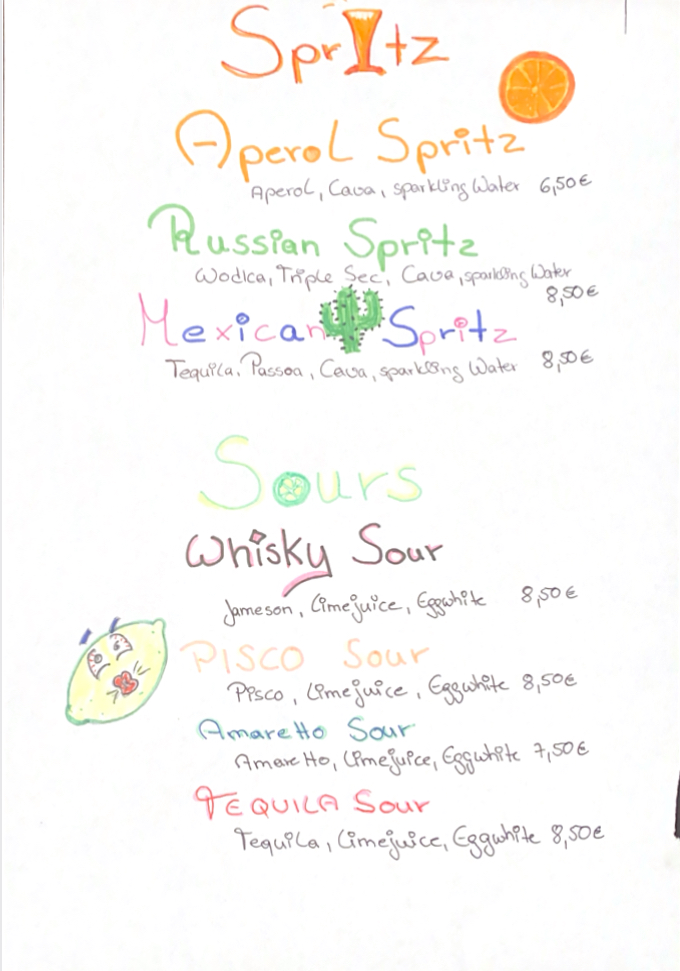 Spritz
Aperol Spritz
Aperol, Cava, sparkling Water 6,50€
Russian Spritz
Wodka, Triple Sec, Cava, sparkling Water
8,50€
Mexican Spritz
Tequila, Passoa, Cava, sparkling Water 8,50€
Sours
Whisky Sour
Jameson, Limejuice, Eggwhite 8,50€
PISCO Sour
Pisco, Limejuice, Eggwhite 8,50€
Amaretto Sour
Amaretto, Limejuice, Eggwhite 7,50€
TEQUILA Sour
Tequila, Limejuice, Eggwhite 8,50€